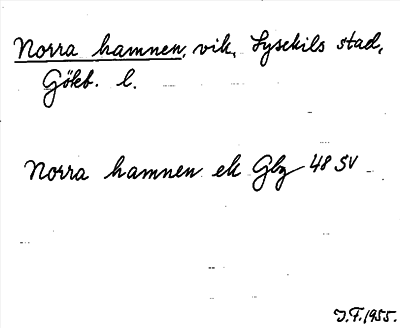 Norra hamnen, vik, Lysekils stad,
Gökb. l.
Norra hamnen ek Gbg 48 SV
J.F. 1955.